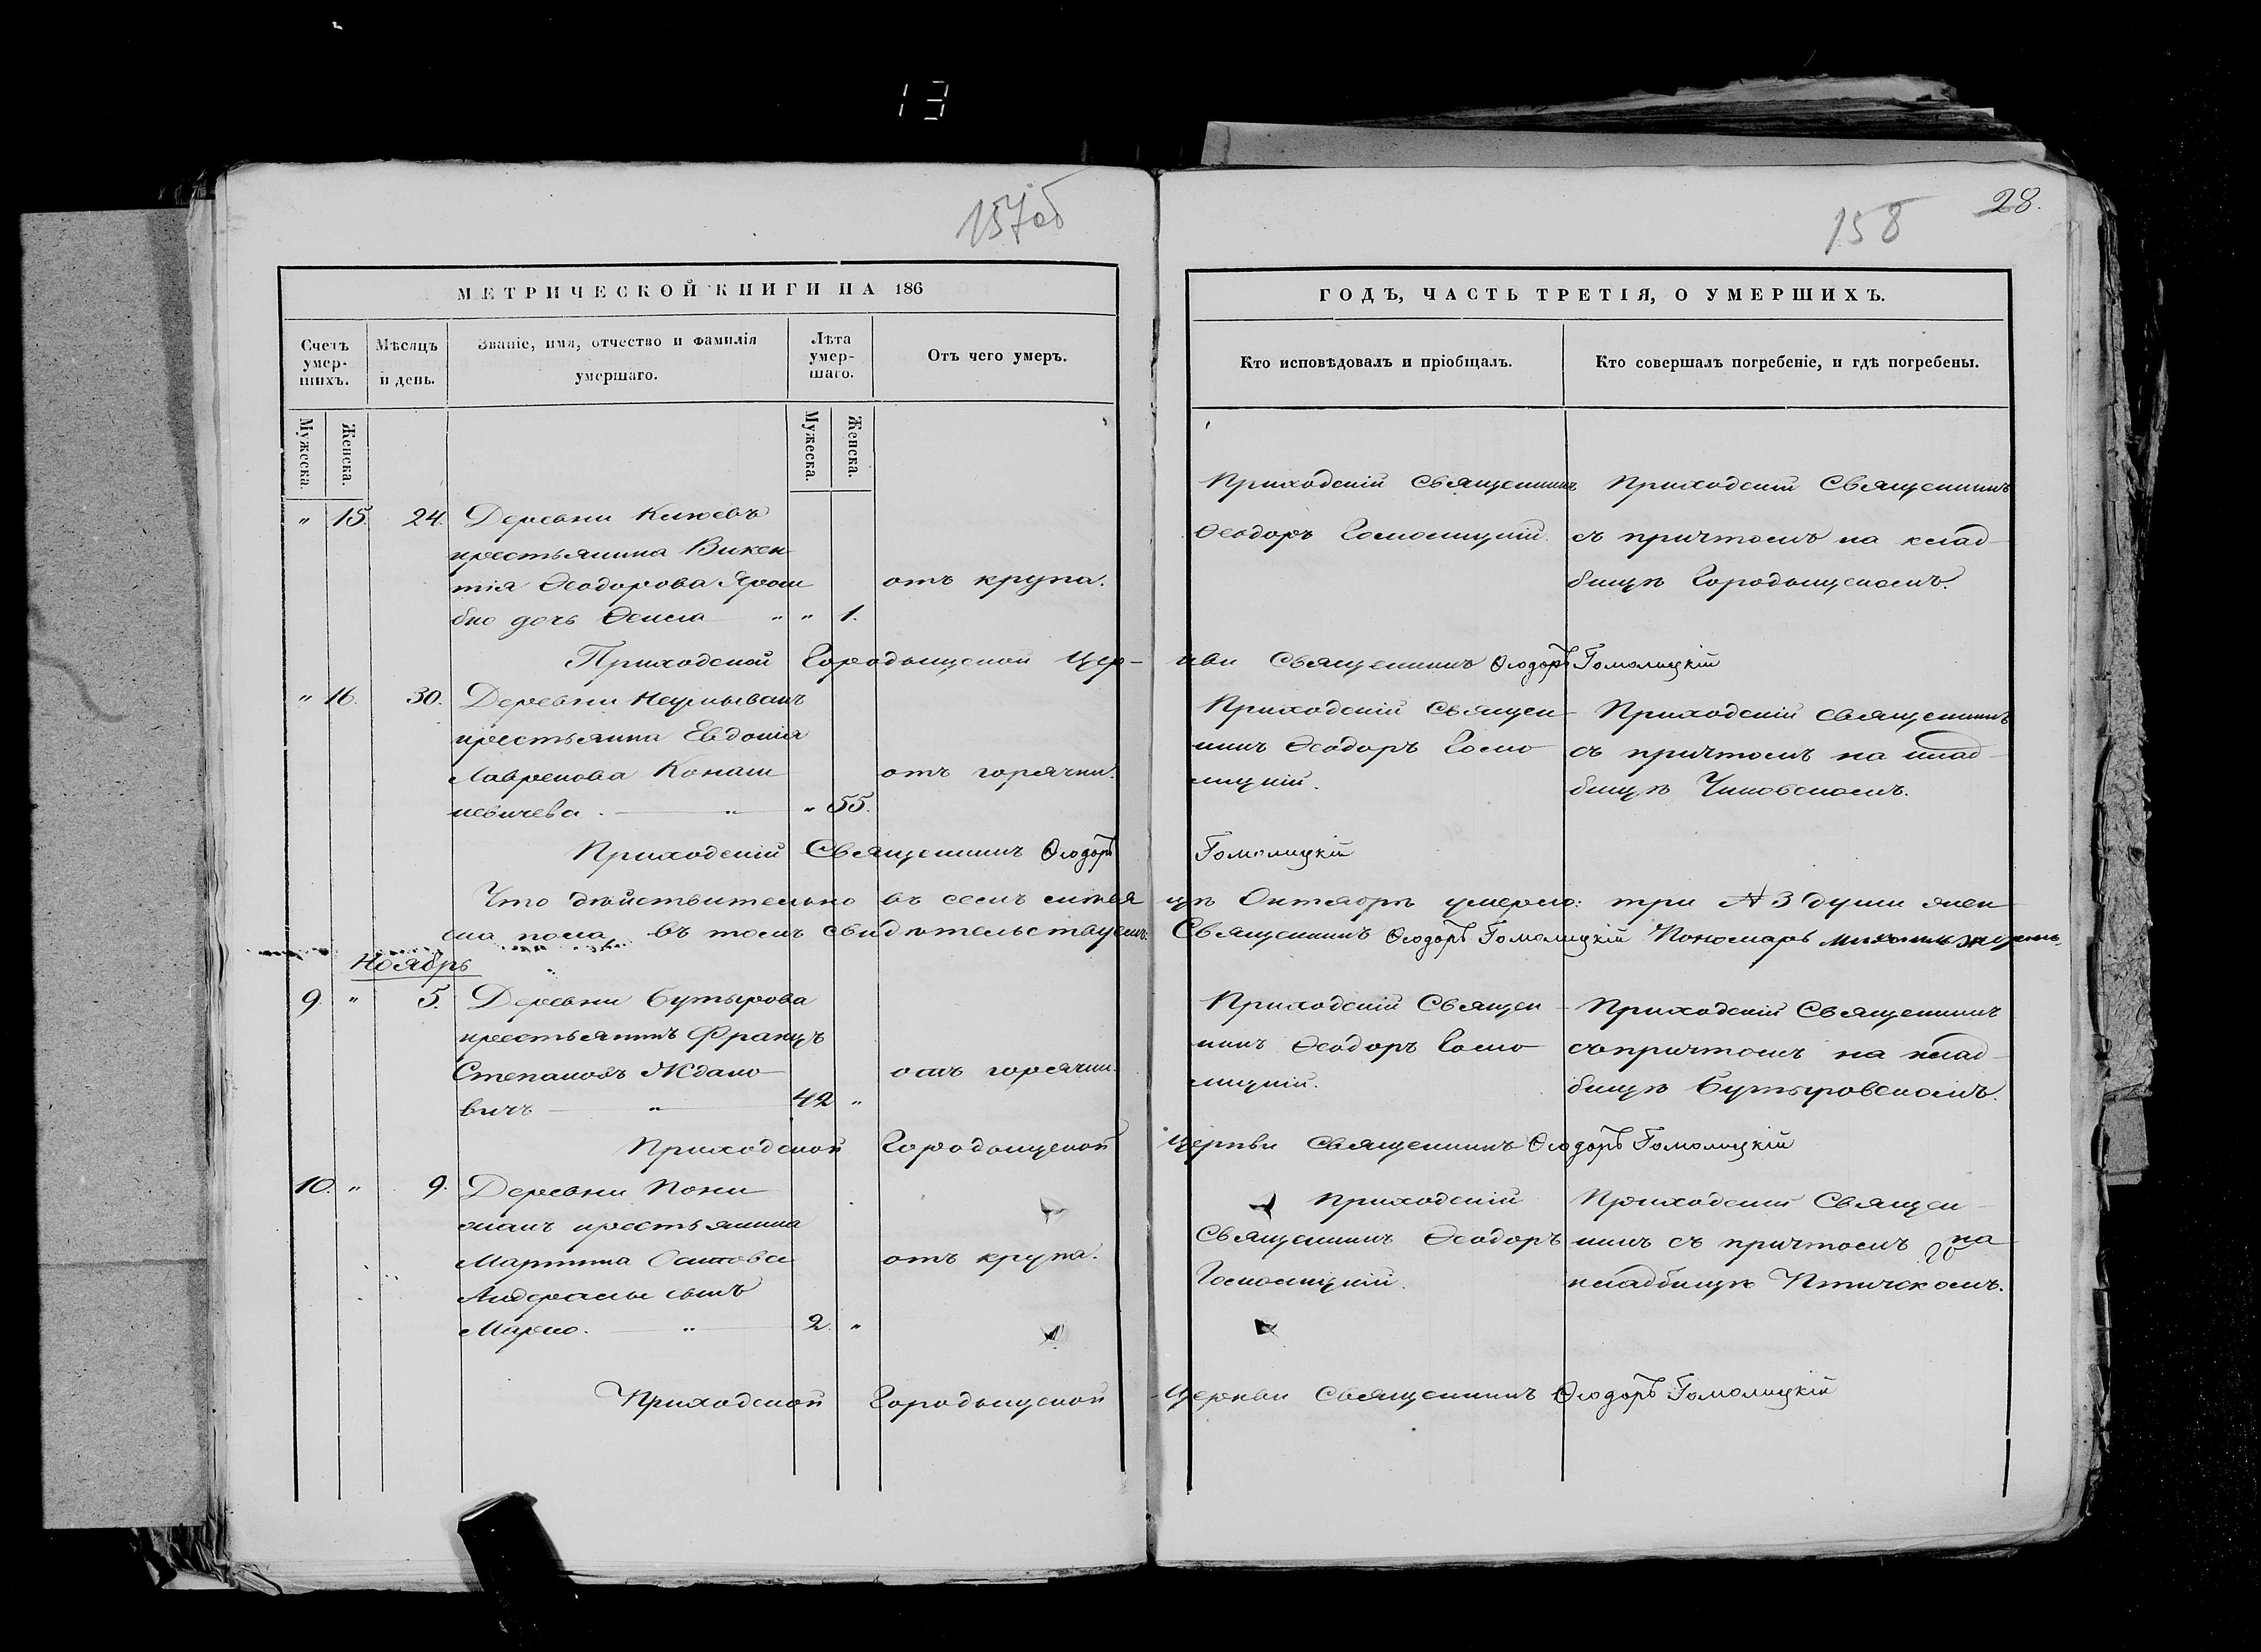 13
157об
158
28.
МЕТРИЧЕСКОЙ КНИГИ НА 186
ГОДЪ, ЧАСТЬ ТРЕТІЯ, О УМЕРШИХЪ.
Счетъ умер-шихъ.
Мѣсяцъ и день.
Званіе, имя, отчество и фамилія умершаго.
Лѣта умер-шаго.
Отъ чего умеръ.
Кто исповѣдовалъ и пріобщалъ.
Кто совершалъ погребеніе, и гдѣ погребены.
Мужеска.
Женска.
Мужеска.
Женска.
" 15. 24. Деревни
крестьянина Викен
тія Ѳеодорова
дочь " " 1.
отъ крупа.
Приходскій Священникъ
Ѳеодоръ Гомолицкій.
Приходскій Священникъ
съ причтомъ на клад-
бищѣ Городыщскомъ.
Приходской Городыщской Цер-
кви Священникъ Ѳеодоръ Гомолицкій
" 16. 30. Деревни
крестьянка Евдокія
Лавренова Конаш
кевичева. " " 55.
отъ горячки.
Приходскій Священ-
никъ Ѳеодоръ Гомо-
лицкій.
Приходскій Священникъ
съ причтомъ на клад-
бищѣ
Приходскій Священникъ Ѳеодоръ
Гомолицкій
Что дѣйствительно въ семъ мѣся
цѣ Октябрѣ умерло: три № 3 души жен
ска пола въ томъ свидѣтельствуемъ:
Священникъ Ѳеодоръ Гомолицкій Пономарь
Ноябрь
9. " 5. Деревни Бутырова
крестьянинъ Францъ
Степановъ Ждано-
вичъ " 42 "
отъ горячки.
Приходскій Священ-
никъ Ѳеодоръ Гомо-
лицкій.
Приходскій Священникъ
съ причтомъ на клад-
бищѣ Бутыровскомъ.
Приходской Городыщской
Церкви Священникъ Ѳеодоръ Гомолицкій
10. " 9. Деревни
крестьянина
Мартина
сынъ
Марко. " 2. "
отъ крупа.
Приходскій
Священникъ Ѳеодоръ
Гомолицкій.
Приходскій Священ-
никъ съ причтомъ на
кладбищѣ Птичскомъ.
Приходской Городыщской
Церкви Священникъ Ѳеодоръ Гомолицкій